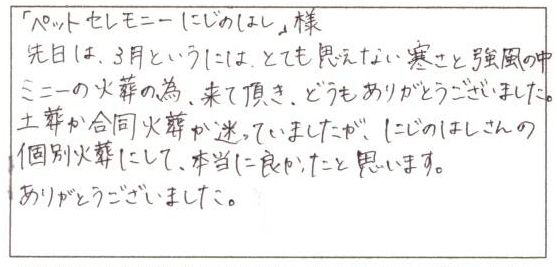 「ペットセレモニーにじのはし」様
先日は、3月というには、とても思えない寒さと強風の中
ミニーの火葬の為、来て頂き、どうもありがとうございました。
土葬か合同火葬か迷っていましたが、にじのはしさんの
個別火葬にして、本当に良かったと思います。
ありがとうございました。